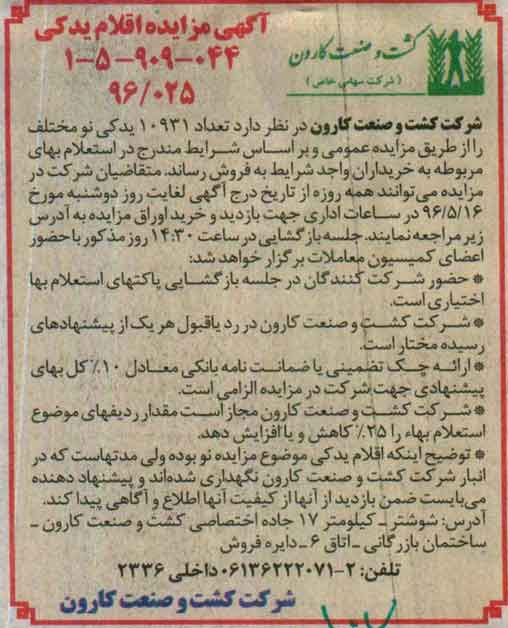 کشت و صنعت کارون
(شرکت سهامی خاص)
آگهی مزایده اقلام یدکی
۱-۵-۹۰۹-۰۴۴
۹۶/۰۲۵
شرکت کشت و صنعت کارون در نظر دارد تعداد ۱۰۹۳۱ یدکی نو مختلف
را از طریق مزایده عمومی و بر اساس شرایط مندرج در استعلام بهای
مربوطه به خریداران واجد شرایط به فروش رساند. متقاضیان شرکت در
مزایده می‌توانند همه روزه از تاریخ درج آگهی لغایت روز دوشنبه مورخ
۹۶/۵/۱۶ در ساعات اداری جهت بازدید و خرید اوراق مزایده به آدرس
زیر مراجعه نمایند. جلسه بازگشایی در ساعت ۱۴:۳۰ روز مذکور با حضور
اعضای کمیسیون معاملات برگزار خواهد شد:
* حضور شرکت کنندگان در جلسه بازگشایی پاکتهای استعلام بها
اختیاری است.
* شرکت کشت و صنعت کارون در رد یا قبول هر یک از پیشنهادهای
رسیده مختار است.
* ارائه چک تضمینی یا ضمانت نامه بانکی معادل ۱۰٪ کل بهای
پیشنهادی جهت شرکت در مزایده الزامی است.
* شرکت کشت و صنعت کارون مجاز است مقدار ردیفهای موضوع
استعلام بهاء را ۲۵٪ کاهش و یا افزایش دهد.
* توضیح اینکه اقلام یدکی موضوع مزایده نو بوده ولی مدتهاست که در
انبار شرکت کشت و صنعت کارون نگهداری شده‌اند و پیشنهاد دهنده
می‌بایست ضمن بازدید از آنها از کیفیت آنها اطلاع و آگاهی پیدا کند.
آدرس: شوشتر ـ کیلومتر ۱۷ جاده اختصاصی کشت و صنعت کارون ـ
ساختمان بازرگانی ـ اتاق ۶ ـ دایره فروش
تلفن: ۲-۰۶۱۳۶۲۲۲۰۷۱ داخلی ۲۳۳۶
شرکت کشت و صنعت کارون